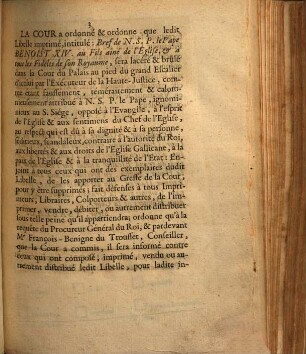 3
LA COUR a ordonné & ordonne, que ledit
Libelle imprimé, intitulé : Bref de N. S. P. le Pape
BENOIST XIV. au Fils aîné de l'Eglise, & à
tous les Fidèles de son Royaume, sera lacéré & brûlé
dans la Cour du Palais au pied du grand Escalier
d'icelui par l'Exécuteur de la Haute-Justice, com-
me étant faussement, témérairement & calom-
nieusement attribué à N. S. P. le Pape, ignomi-
nieux au S. Siége, opposé à l'Evangile, à l'esprit
de l'Eglise & aux sentimens du Chef de l'Eglise,
au respect qui est dû à sa dignité & à sa personne,
séditieux, scandaleux, contraire à l'autorité du Roi,
aux libertés & aux droits de l'Eglise Gallicane, à la
paix de l'Eglise & à la tranquillité de l'Etat : En-
joint à tous ceux qui ont des exemplaires dudit
Libelle, de les apporter au Greffe de la Cour,
pour y être supprimés ; fait défenses à tous Impri-
meurs, Libraires, Colporteurs & autres, de l'im-
primer, vendre, débiter, ou autrement distribuer
sous telle peine qu'il appartiendra; ordonne qu'à la
requête du Procureur Général du Roi, & pardevant
Me François-Benigne du Trousset, Conseiller,
que la Cour a commis, il sera informé contre
ceux qui ont composé, imprimé, vendu ou au-
trement distribué ledit Libelle, pour ladite in-